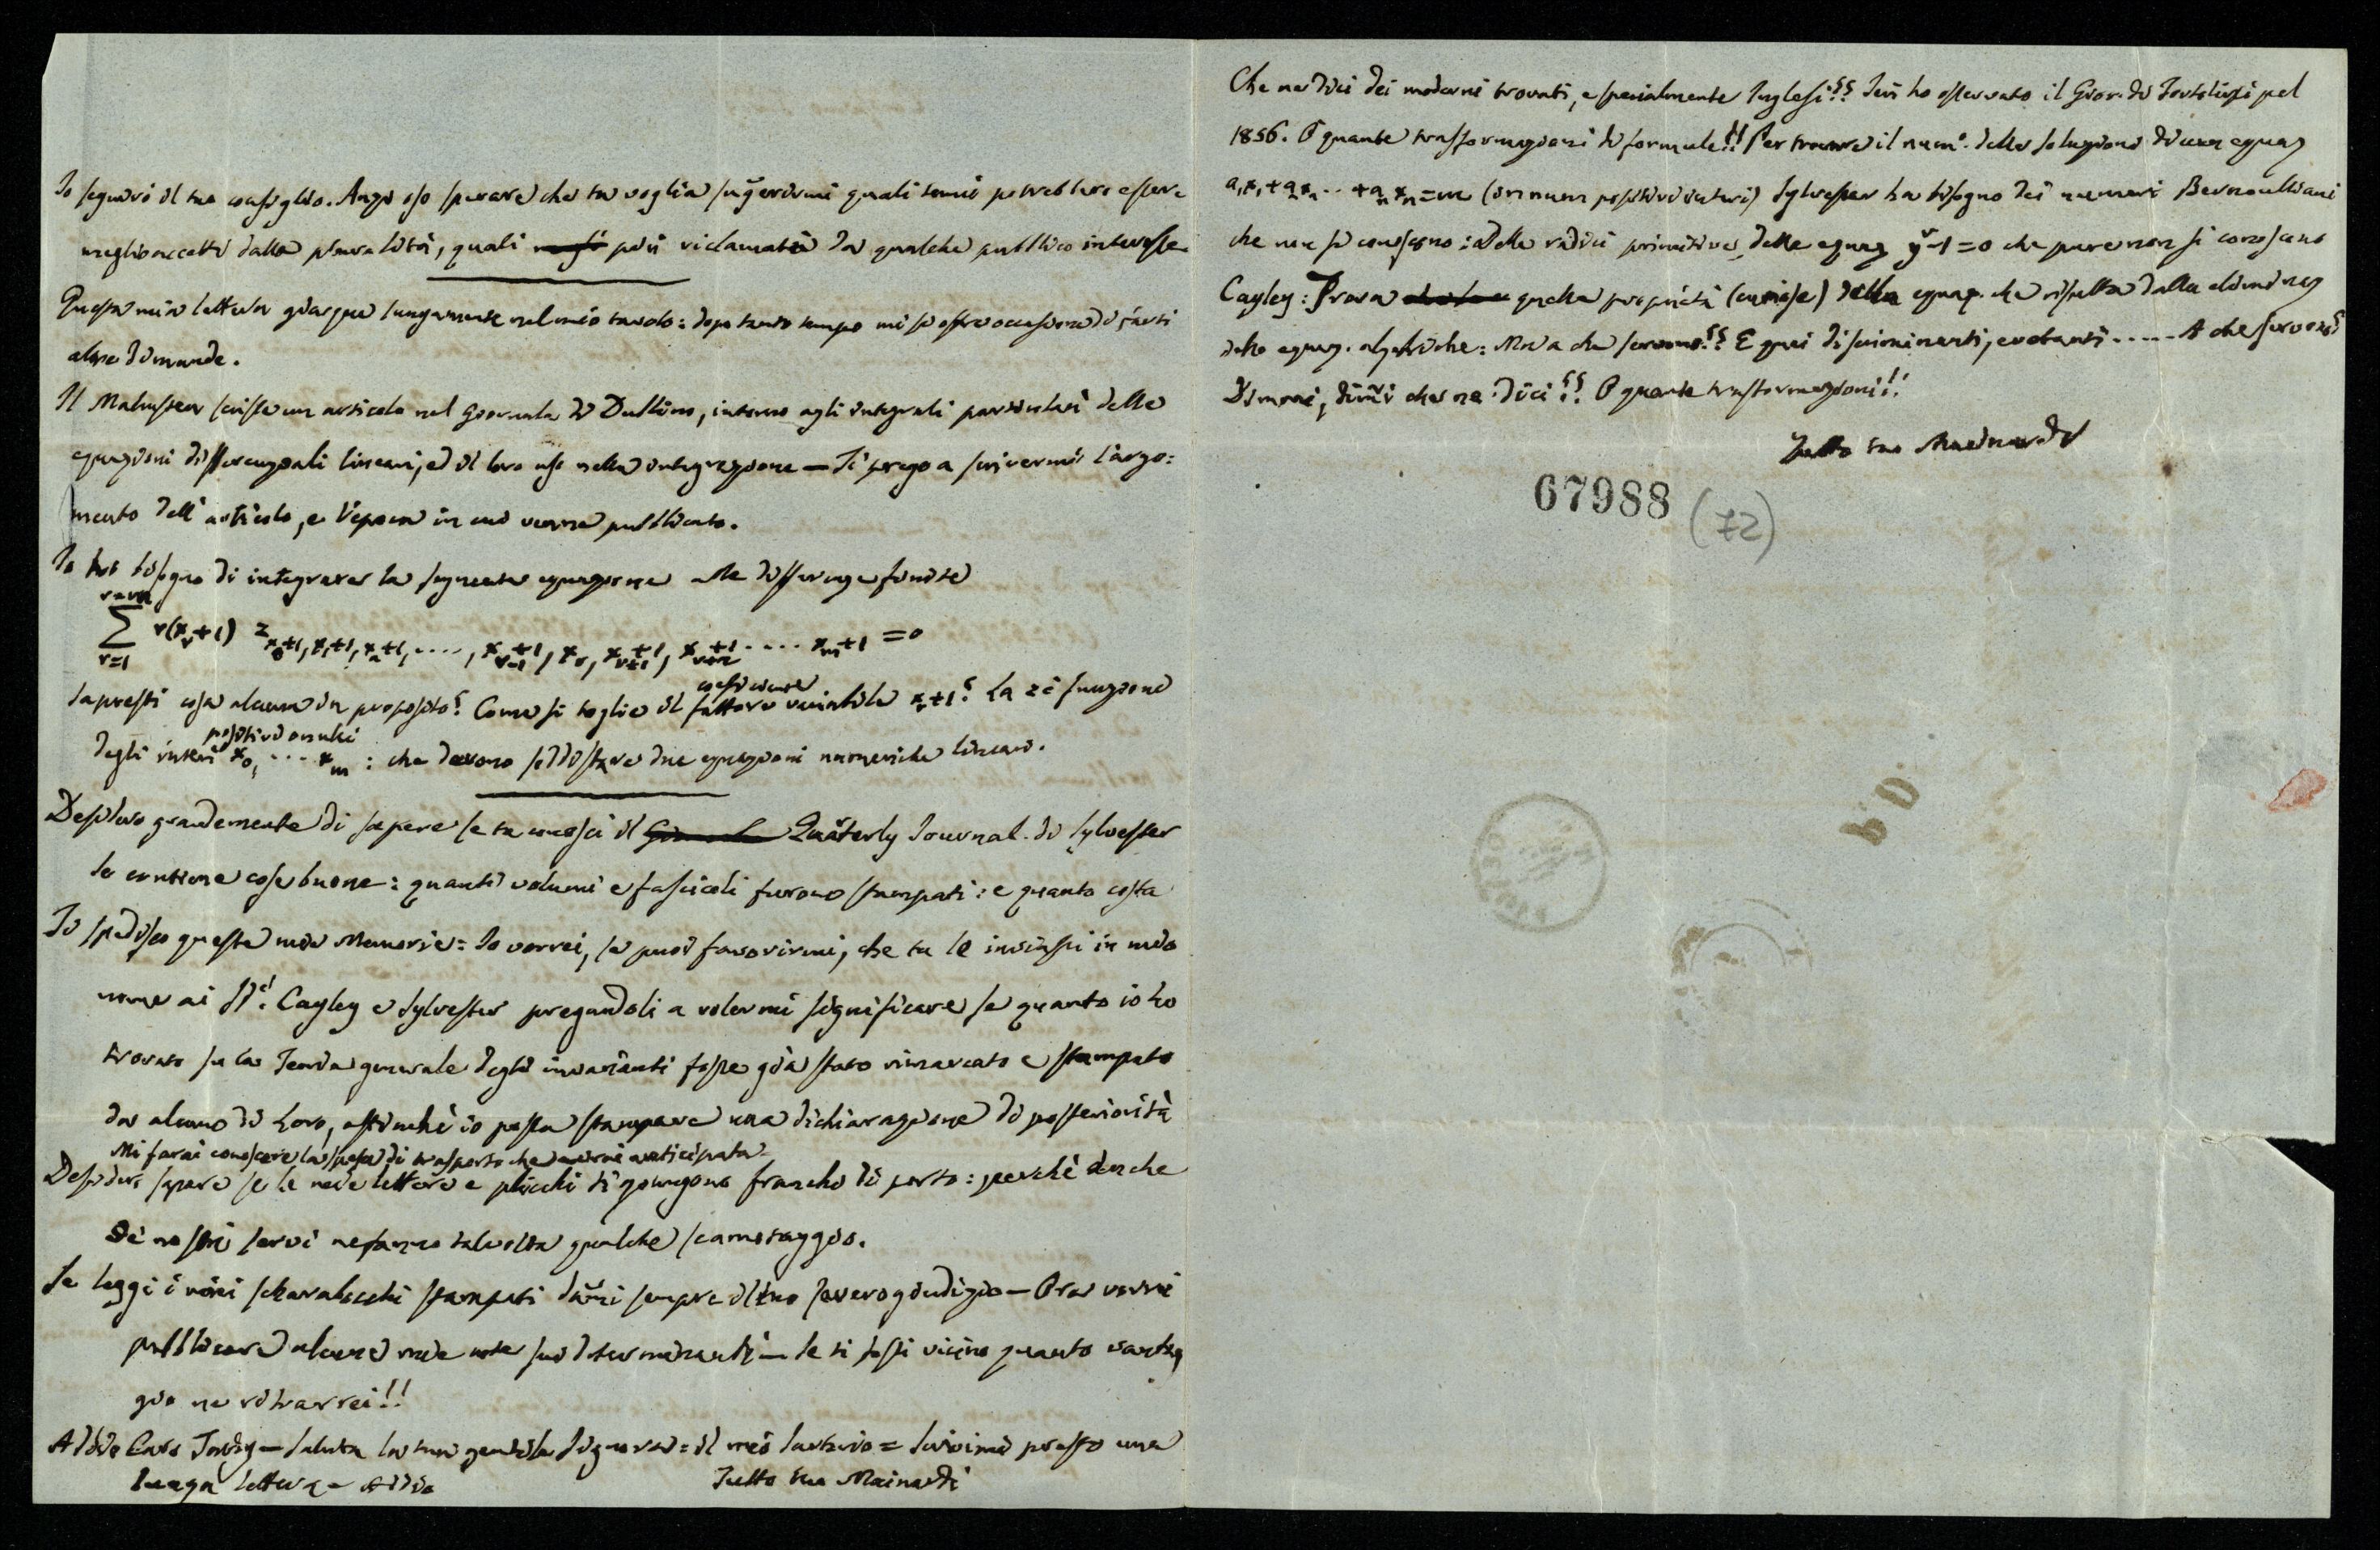 Io seguirò il tuo consiglio. Anzi oso sperare che tu voglia suggerirmi quali temi potrebbero essere
meglio accetti dalla pluralità, quali più riclamati da qualche pubblico interesse.
Questa mia lettera giacque lungamente nel mio tavolo: dopo tanto tempo mi si offre occasione di farti
altre dimande.
Il Malmsten scrisse un articolo nel Giornale di Dublino, intorno agli integrali particolari delle
equazioni differenziali lineari, ed il loro uso nella integrazione — Ti prego a scrivermi l'argo=
mento dell'articolo, e l'epoca in cui venne pubblicato.
Io ho bisogno di integrare la seguente equazione alle differenze finite
r=m
∑ r(x_r+1) z x_0+1, x_1+1, x_2+1, ...., x_{r-1}+1, x_r, x_{r+1}+1, x_{r+2}+1 .... x_m+1 =0
r=1
coefficiente
Sapresti cosa alcuna in proposito? Come si toglie il fattore variabile x_r+1? La z è funzione
positivi o nulli
degli interi x_0, ... x_m : che devono soddisfare due equazioni numeriche lineari.
Desidero grandemente di sapere se tu conosci il Giornale Quarterly Journal di Sylvester
se contiene cose buone: quanti volumi e fascicoli furono stampati: e quanto costa
Ti spedisco queste mie Memorie: Io vorrei, se puoi favorirmi, che tu le inviassi in mio
nome ai SS.ri Cayley e Sylvester pregandoli a volermi significare se quanto io ho
trovato su la Teoria generale degli invarianti fosse già stato rimarcato e stampato
da alcuno di Loro, affinchè io possa stampare una dichiarazione di posteriorità
Mi farai conoscere la spesa di trasporto che avrai anticipata.
Desidero sapere se le mie lettere e plicchi ti giungono franche di porto: perchè anche
di nostri servi ne fanno talvolta qualche camotaggio.
Se leggi i miei scarabocchi stampati dammi sempre il tuo severo giudizio — Ora vorrei
pubblicare alcune mie note sui determinanti — Se ti fossi vicino quanto vantag
gio ne ritrarrei!!
Addio Caro Tardy — saluta la tua gentile Signora: il mio = scrivimi presto una
lunga lettera — Addio Tutto tuo Mainardi
Che ne dici dei moderni trovati, e specialmente Inglesi?? Ieri ho osservato il Gior. di Tortolini pel
1856. O quante trasformazioni di formule!! Per trovare il num.° delle soluzioni di una equaz
a_1x_1+a_2x_2 .. +a_nx_n=m (in num positivi interi) Sylvester ha bisogno dei numeri Bernoulliani
che non si conoscono: delle radici primitive delle equaz y^r-1=0 che pure non si conoscono
Cayley: Trova quelle proprietà (curiose) della equaz. che risulta dalla eliminaz
delle equaz. algebriche: Ma a che servono?? E quei discriminanti, evettanti ..... A che servono?
Dimmi, dimmi che ne dici?? O quante trasformazioni!!
Tutto tuo Mainardi
67988 (72)